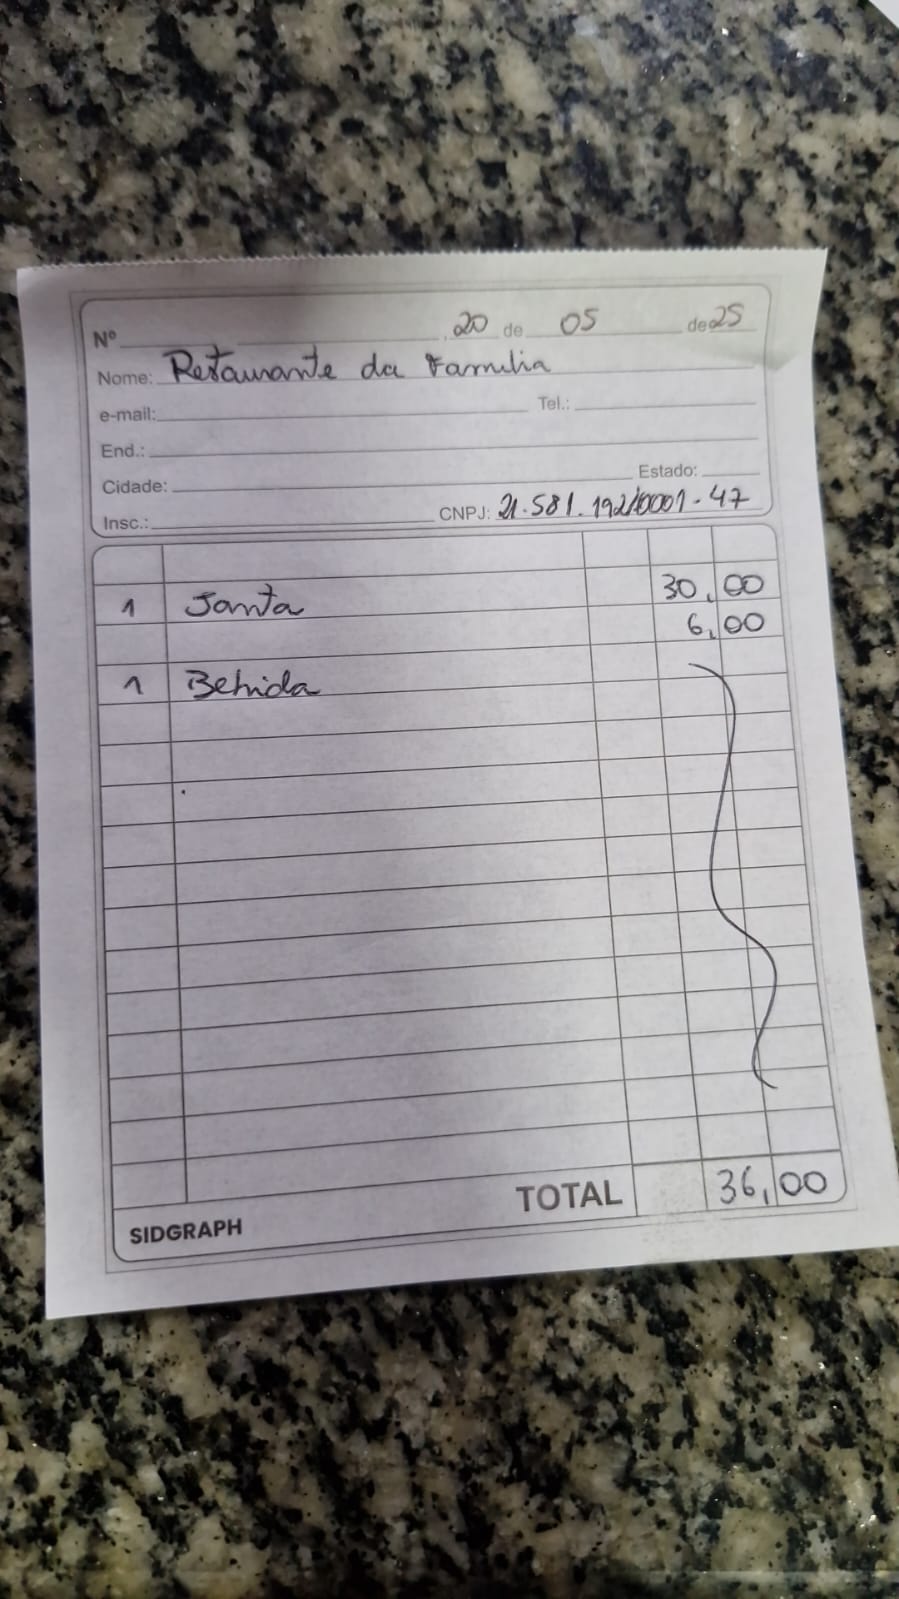 Nº , 20 de 05 de 25
Nome: Restaurante da Familia
e-mail: Tel.:
End.:
Cidade: Estado:
Insc.: CNPJ: 21.581.192/0001-47
1 Janta 30,00
6,00
1 Bebida
TOTAL 36,00
SIDGRAPH